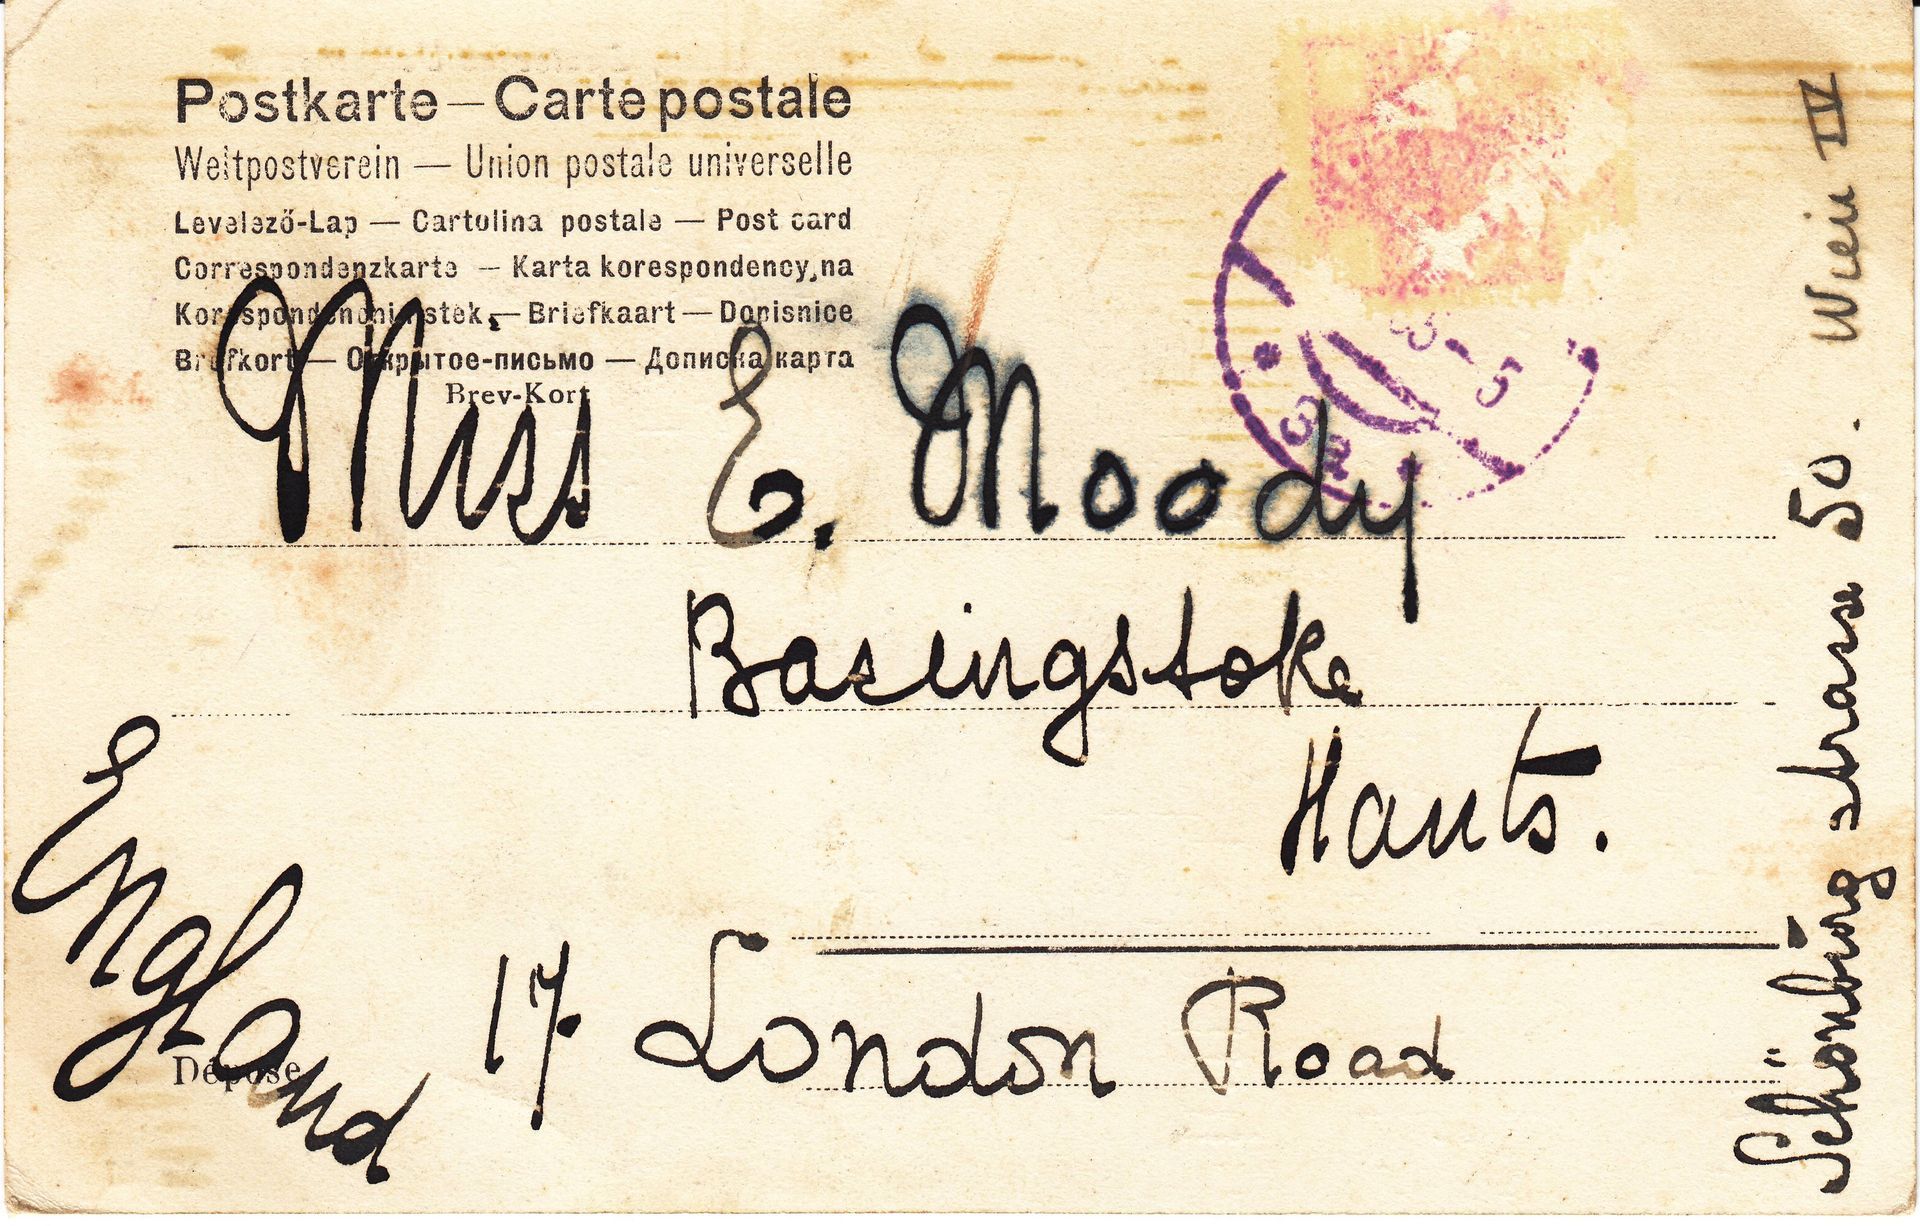 Postkarte — Carte postale
Weltpostverein — Union postale universelle
Levelező-Lap — Cartolina postale — Post card
Correspondenzkarte — Karta korespondency,na
— Briefkaart — Dopisnice
Brefkort — Открытое-письмо — Дописна карта
Brev-Kort
Miss E. Moody
Basingstoke
Hants.
17. London Road
England
Dépose
Schönburg strasse 50. Wien IV
3a
5